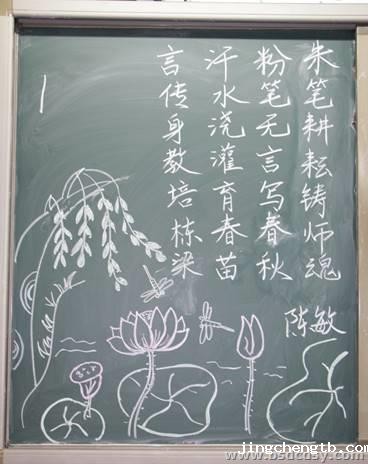 朱笔耕耘铸师魂
粉笔无言写春秋
汗水浇灌育春苗
言传身教培栋梁
陈敏
jingchengtb.com